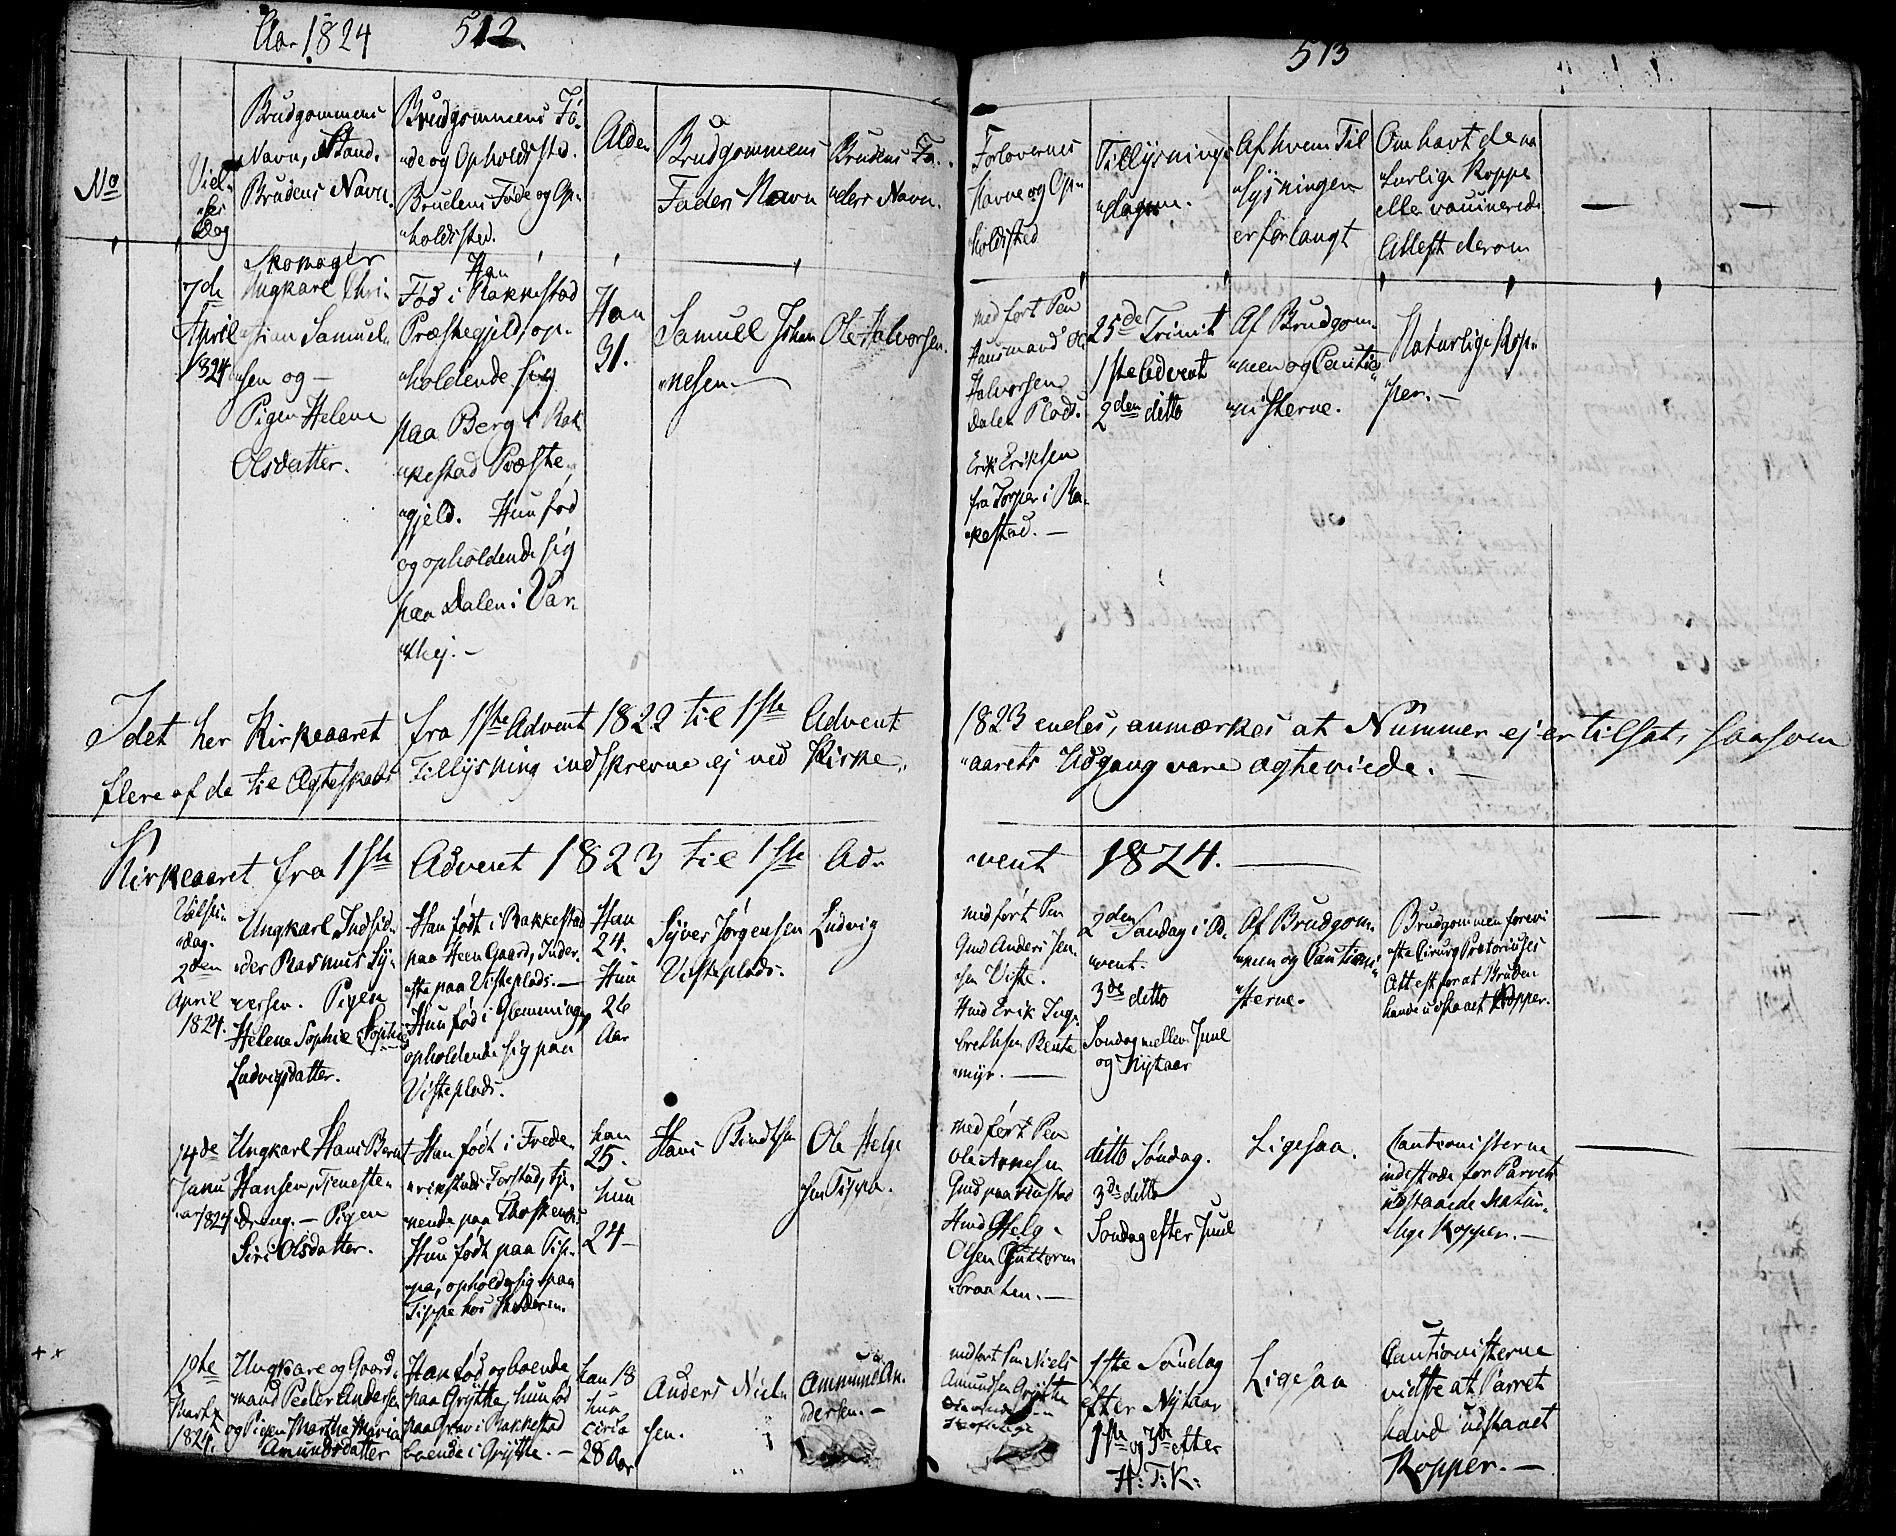 Aar 1824
512.
513
No
Viel-
ses
Dag
Brudgommens
Navn, Stand.
Brudens Navn.
Brudgommens Fø-
de og Opholdssted.
Brudens Føde og Op-
holdssted.
Alder
Brudgommens
Faders Navn
Brudens Fa-
ders Navn.
Forlovernes
Navne og Op-
holdssted
Tillysnings
dagene.
Af hvem Til
lysningen
er forlangt
Om havt de na
turlige Kopper
eller vaccinerede
Attest derom
7de
April
1824
Skomager
Ungkarl Chri-
stian Samuel-
sen og -
Pigen Helene
Olsdatter.
Han
Fød i Rakkestad
Præstegjeld, op-
holdende sig
paa Berg i Rak
kestad Præste-
gjeld. Hun fød
og opholdende sig
paa Dalen i Var
thej. -
Han
31.
Samuel Johan
nesen
Ole Halvorsen.
med ført Pen
Huusmand Ole
Halvorsen
Dalen Plads.
Erik Eriksen
fra Torper i Ra-
kestad. -
25de Trinit
1ste Advent
2den ditto
Af Brudgom-
men og Cautio
nisterne.
Naturlige Kop-
per. -
I det her Kirkeaaret fra 1ste Advent 1822 til 1ste Advent 1823 endes, anmærkes at Nummer ej er tilsat, saasom
flere af de til Ægteskabs Tillysning indskrevne ej ved Kirke-aarets Udgang vare ægteviede. -
Kirkeaaret fra 1ste Advent 1823 til 1ste Ad-vent 1824.
dag.
2den
April
1824.
Ungkarl Indsid-
der Rasmus Sy-
versen. Pigen
Helene Sophie (Sophie)
Ludvigsdatter.
Han født i Rakkestad
paa Heen Gaard, Inder-
ste paa Visteplads. -
Hun fød i Glemminge,
opholdende sig paa
Visteplads.
Han
24.
Hun
26
Aar
Syver Jørgensen
Visteplads.
Ludvig
med ført Pen
Gmd Anders Jen-
sen Viste.
Hmd Erik Ing-
brethsen Bente
myr. -
2den Søndag i Ad-
vent.
3de ditto
Søndag mellem Juul
og Nytaar
Af Brudgom-
men og Cautioni
sterne.
Brudgommen forevi
ste Cirurg Pretorius's
Attest for at Bruden
havde udstaaet Kopper.
14de
Janu
ar 1824
Ungkarl Hans Bernt
Hansen, Tjeneste-
dreng. - Pigen
Siri Olsdatter.
Han født i Frede-
rikstads Forstad, tje-
nende paa Thoskeruds
Hun født paa Tip-
pa, opholder sig paa
Tippe hos Moderen.
han
25.
hun
24
Hans Bindtsen
Ole Helge
sen Tippa.
med ført Pen
Ole Arnesen
Gmd paa
Hmd Helge
Olsen Guttorm
braaten. -
ditto Søndag.
3de ditto
Søndag efter Juul
Ligesaa.
Cautionisterne
indestode for Parrets
udstaaede Natur-
lige Kopper. -
Marts
1824.
Ungkarl og Gaard-
mand Peder Andersen
og Pigen Marthe Maria
Amundsdatter
Han fød og boende
paa Grytte, hun fød
paa Grav i Rakkestad
boende i Grytte. -
han 18
hun
circa
28 Aar
Anders Niel-
sen.
Amund An-
dersen. -
med ført Pen Niels
Amundsen Grytte
1ste Søndag
efter Nytaar
1ste og 3de efter
H: T: K:
Ligesaa
Cautionisterne
vidste at Parret
havde udstaaet
Kopper. -